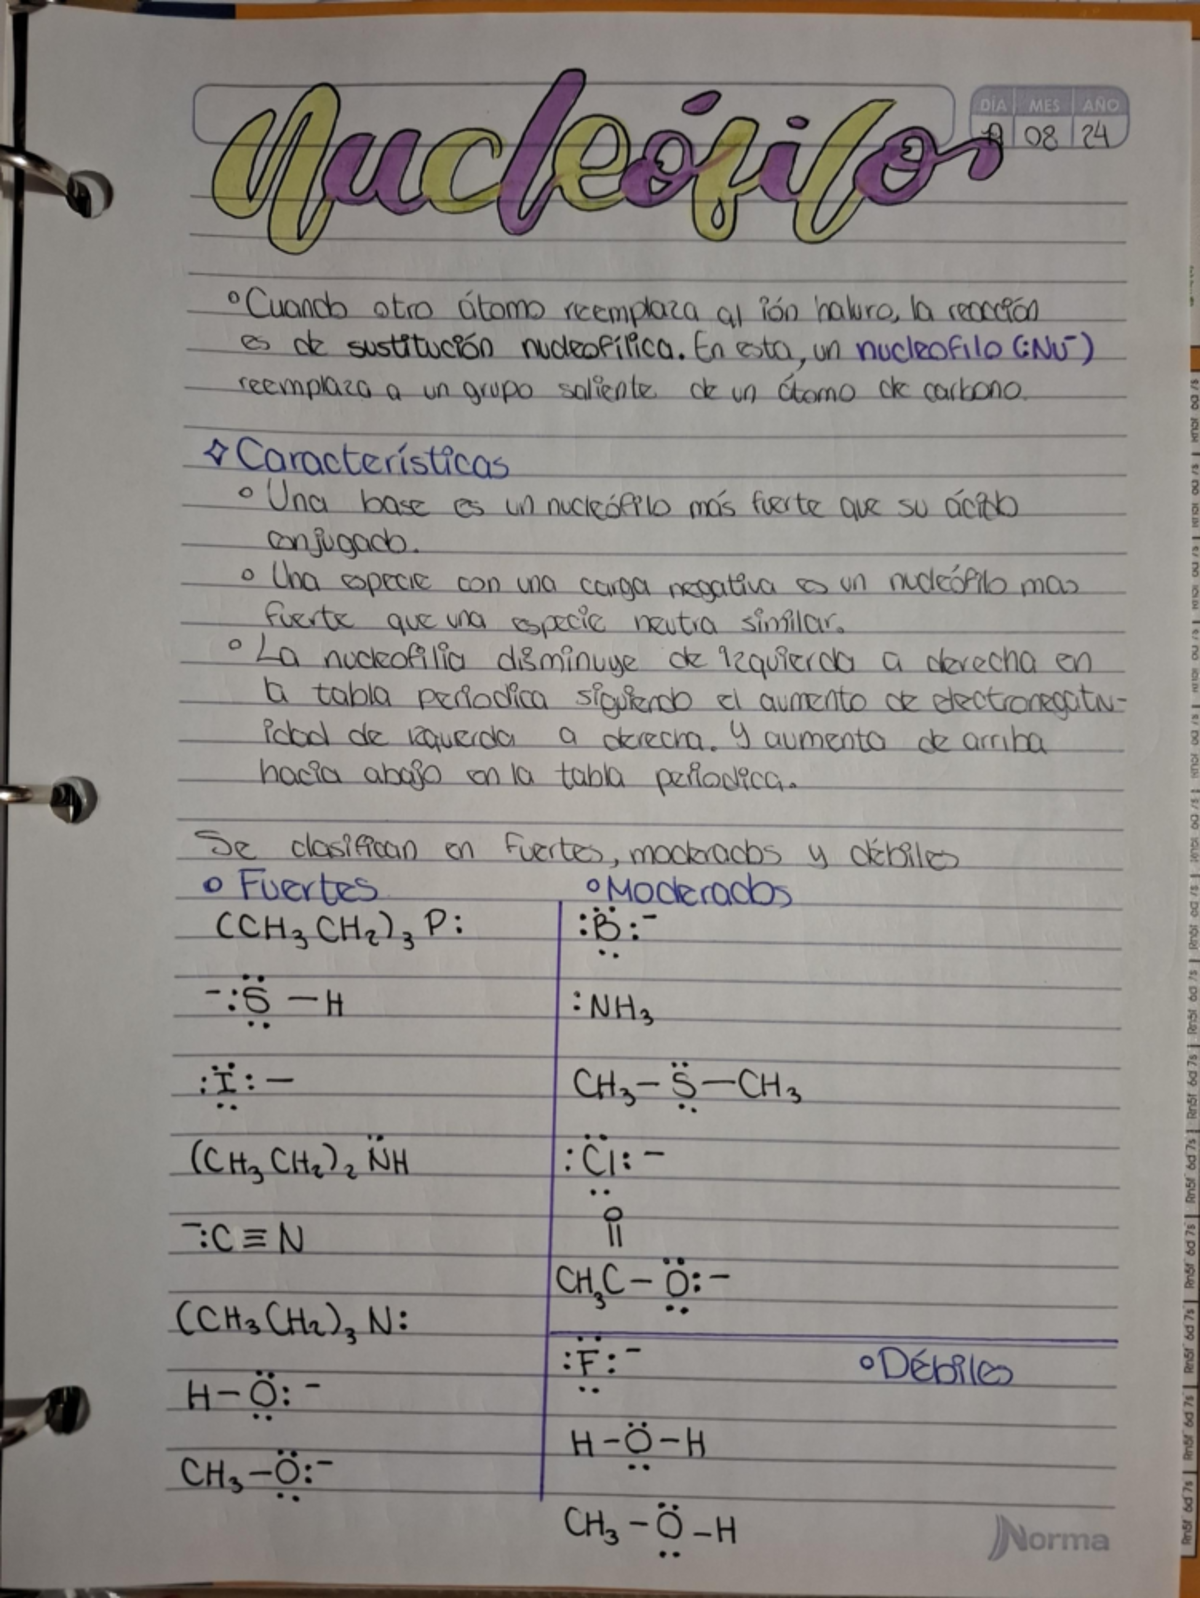 Nucleófilo
DÍA MES AÑO
08 24
° Cuando otro átomo reemplaza al ión haluro, la reacción
es de sustitución nucleofílica. En esta, un nucleofilo (:Nu⁻)
reemplaza a un grupo saliente de un átomo de carbono.
✧ Características
° Una base es un nucleófilo más fuerte que su ácido
conjugado.
° Una especie con una carga negativa es un nucleófilo mas
fuerte que una especie neutra similar.
° La nucleofilia disminuye de izquierda a derecha en
la tabla periodica siguiendo el aumento de electronegativ-
idad de izquerda a derecha. Y aumenta de arriba
hacia abajo en la tabla periodica.
Se clasifican en fuertes, moderados y débiles
° Fuertes
(CH₃CH₂)₃P:
⁻:S̈–H
:Ï:–
(CH₃CH₂)₂N̈H
⁻:C≡N
(CH₃CH₂)₃N:
H–Ö:⁻
CH₃–Ö:⁻
° Moderados
:B̈:⁻
:NH₃
CH₃–S̈–CH₃
:C̈l:⁻
O
||
CH₃C–Ö:–
° Débiles
:F̈:⁻
H–Ö–H
CH₃–Ö–H
Norma